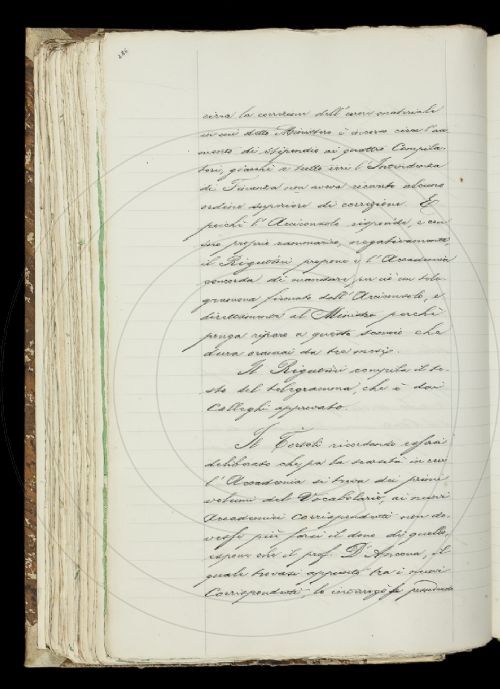 286
circa la correzione dell'error materiale
in cui detto Ministero è incorso circa l'au
mento di stipendio ai quattro Compila-
tori, giacchè a tutto ieri l'Intendenza
di Finanza non aveva ricevuto alcuno
ordine superiore di correzione. E
perchè l'Arciconsolo risponde, e con
sue proprie, negativamente
il Rigutini propone e l'Accademia
concorda di mandare, un tele
gramma firmato dall'Arciconsolo, e
direttamente al Ministro perchè
ponga riparo a questo sconcio che
dura oramai da tre mesi.
Il Rigutini compila il te-
sto del telegramma, che è dai
Colleghi approvato.
Il Tortoli ricordando essersi
deliberato che per la scarsità in cui
l'Accademia si trova dei primi
volumi del Vocabolario, ai nuovi
Accademici corrispondenti non do-
vesse più farsi il dono di quelli,
espone che il prof. D'Ancona, il
quale trovasi appunto tra i nuovi
Corrispondenti, lo incaricò